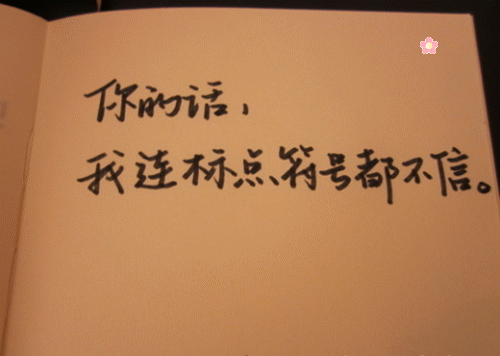 你的话,
我连标点符号都不信。